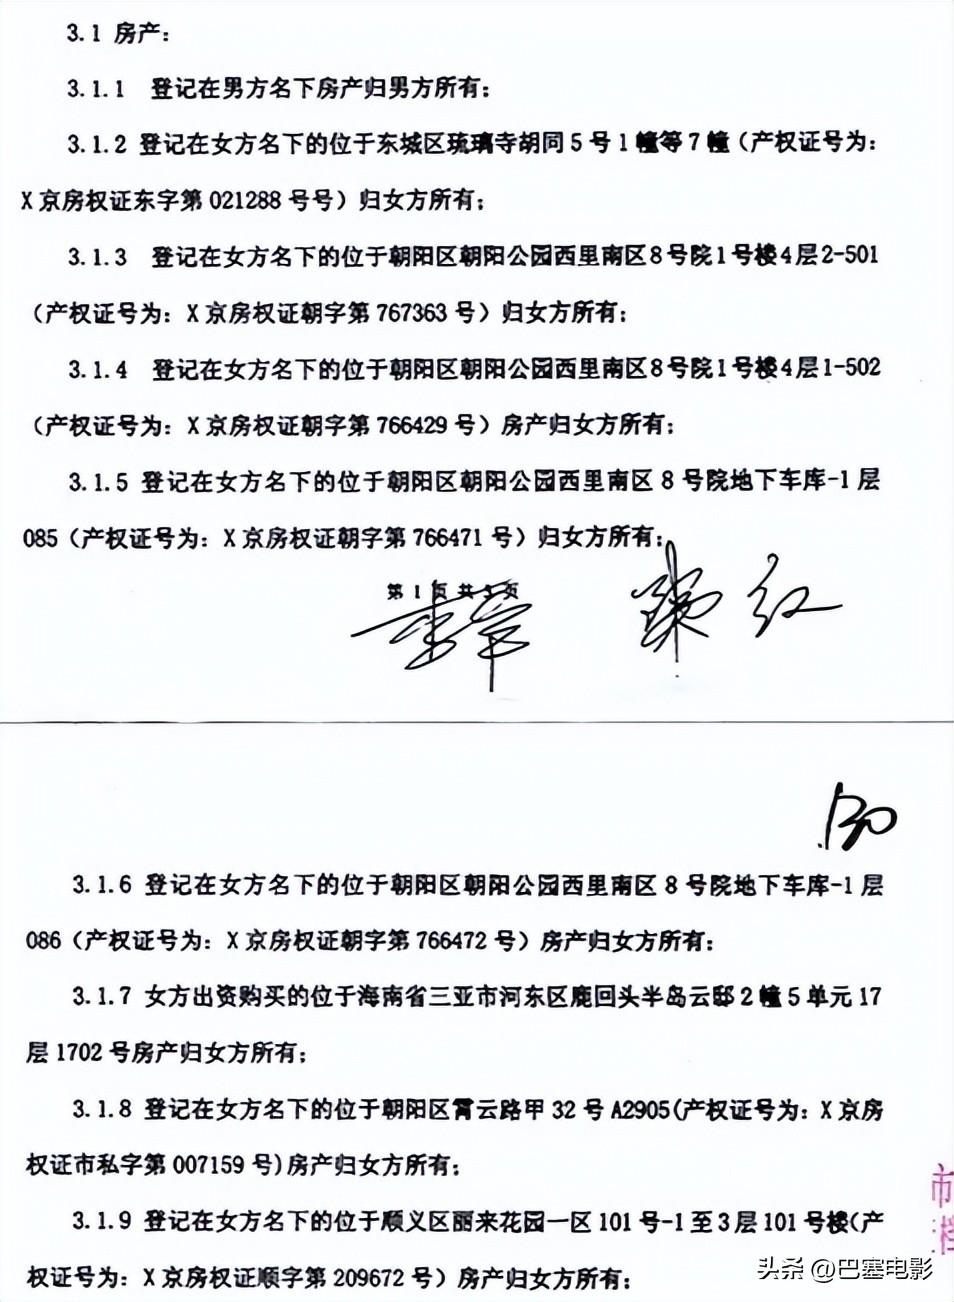 3.1 房产：
3.1.1 登记在男方名下房产归男方所有；
3.1.2 登记在女方名下的位于东城区琉璃寺胡同5号1幢等7幢（产权证号为：
X京房权证东字第021288号号）归女方所有；
3.1.3 登记在女方名下的位于朝阳区朝阳公园西里南区8号院1号楼4层2-501
（产权证号为：X京房权证朝字第767363号）归女方所有；
3.1.4 登记在女方名下的位于朝阳区朝阳公园西里南区8号院1号楼4层1-502
（产权证号为：X京房权证朝字第766429号）房产归女方所有；
3.1.5 登记在女方名下的位于朝阳区朝阳公园西里南区8号院地下车库-1层
085（产权证号为：X京房权证朝字第766471号）归女方所有；
第1页共3页
红
3.1.6 登记在女方名下的位于朝阳区朝阳公园西里南区8号院地下车库-1层
086（产权证号为：X京房权证朝字第766472号）房产归女方所有；
3.1.7 女方出资购买的位于海南省三亚市河东区鹿回头半岛云邸2幢5单元17
层1702号房产归女方所有；
3.1.8 登记在女方名下的位于朝阳区霄云路甲32号A2905(产权证号为：X京房
权证市私字第007159号)房产归女方所有；
3.1.9 登记在女方名下的位于顺义区丽来花园一区101号-1至3层101号楼(产
权证号为：X京房权证顺字第209672号）房产归女方所有；
市
头条 @巴塞电影